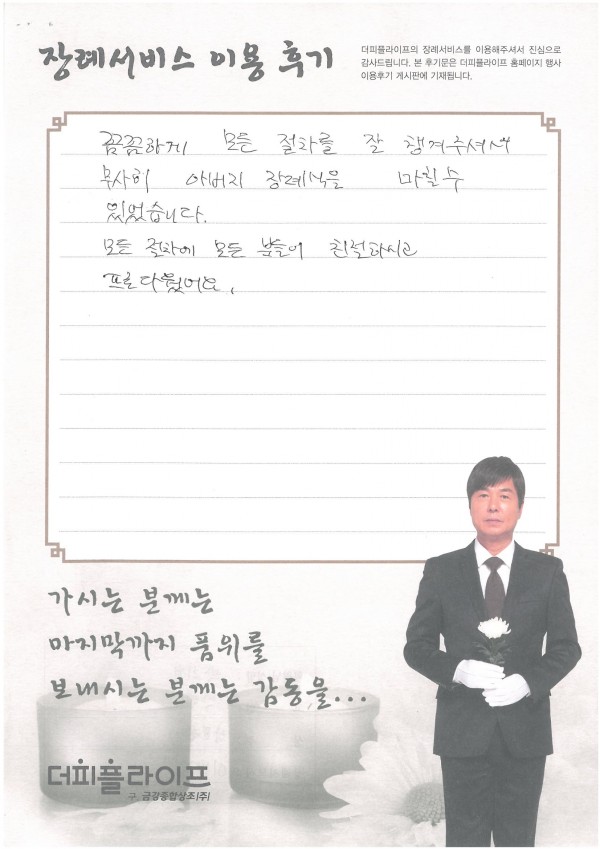 장례서비스 이용 후기
더피플라이프의 장례서비스를 이용해주셔서 진심으로
감사드립니다. 본 후기문은 더피플라이프 홈페이지 행사
이용후기 게시판에 기재됩니다.
꼼꼼하게 모든 절차를 잘 챙겨주셔서
무사히 아버지 장례식을 마칠수
있었습니다.
모든 절차에 모든 분들이 친절하시고
프로다웠어요.
가시는 분께는
마지막까지 품위를
보내시는 분께는 감동을...
더피플라이프
구. 금강종합상조(주)